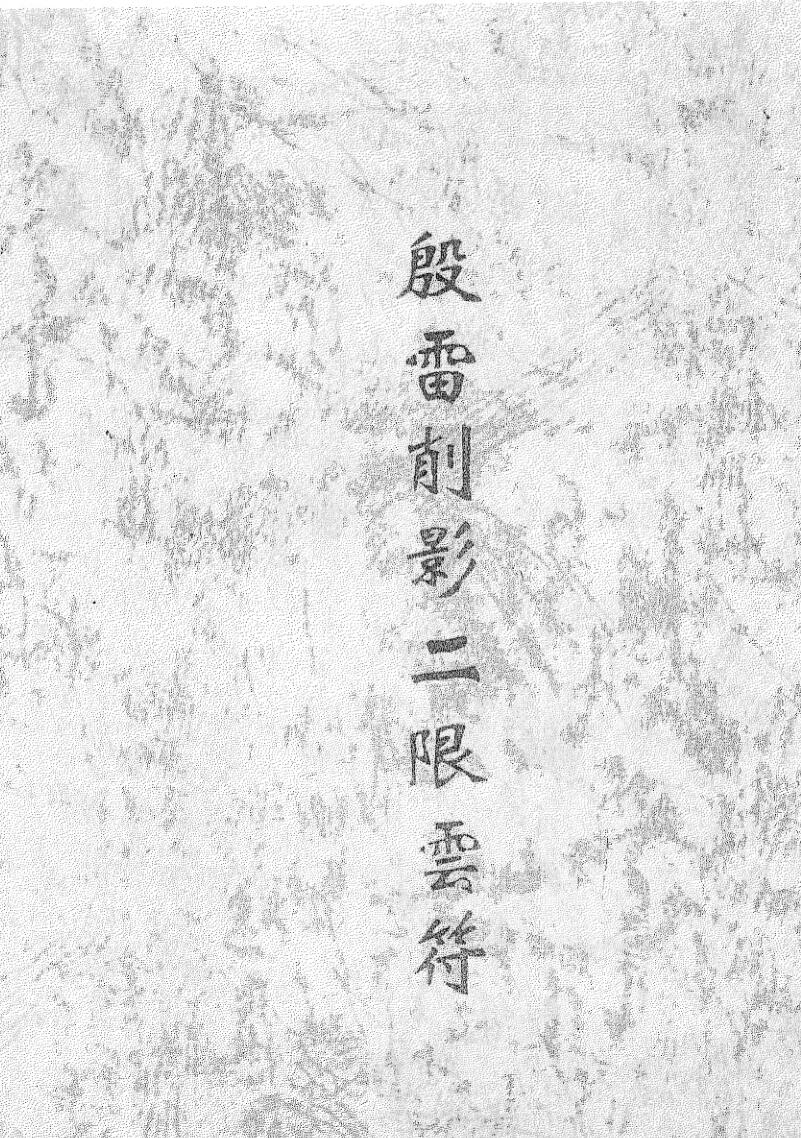 殷雷削影二限雲符